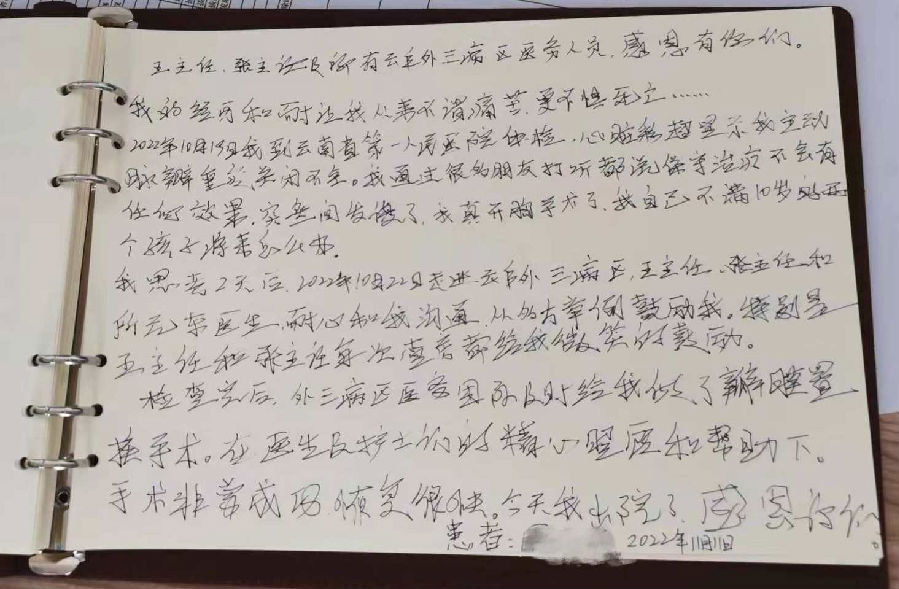 王主任、张主任及所有云阜外三病区医务人员,感恩有你们。
我的经历和耐让我从未不谓痛苦,更不惧死亡……
2022年10月19日我到云南省第一人民医院体检,心脏彩超显示我主动
脉瓣重度关闭不全。我通过很多朋友打听都说保守治疗不会有
任何效果,突然间发慌了,我真开胸手术了,我自己不满10岁的两
个孩子将来怎么办。
我思考2天后,2022年10月22日走进云阜外三病区,王主任、张主任和
所元东医生,耐心和我沟通,从多方举例鼓励我。特别是
王主任和张主任每次查房都给我微笑的鼓励。
检查完后,外三病区医务团队及时给我做了瓣膜置
换手术。在医生及护士们的精心照医和帮助下。
手术非常成功恢复很快。今天我出院了,感恩你们
患者: 2022年11月11日